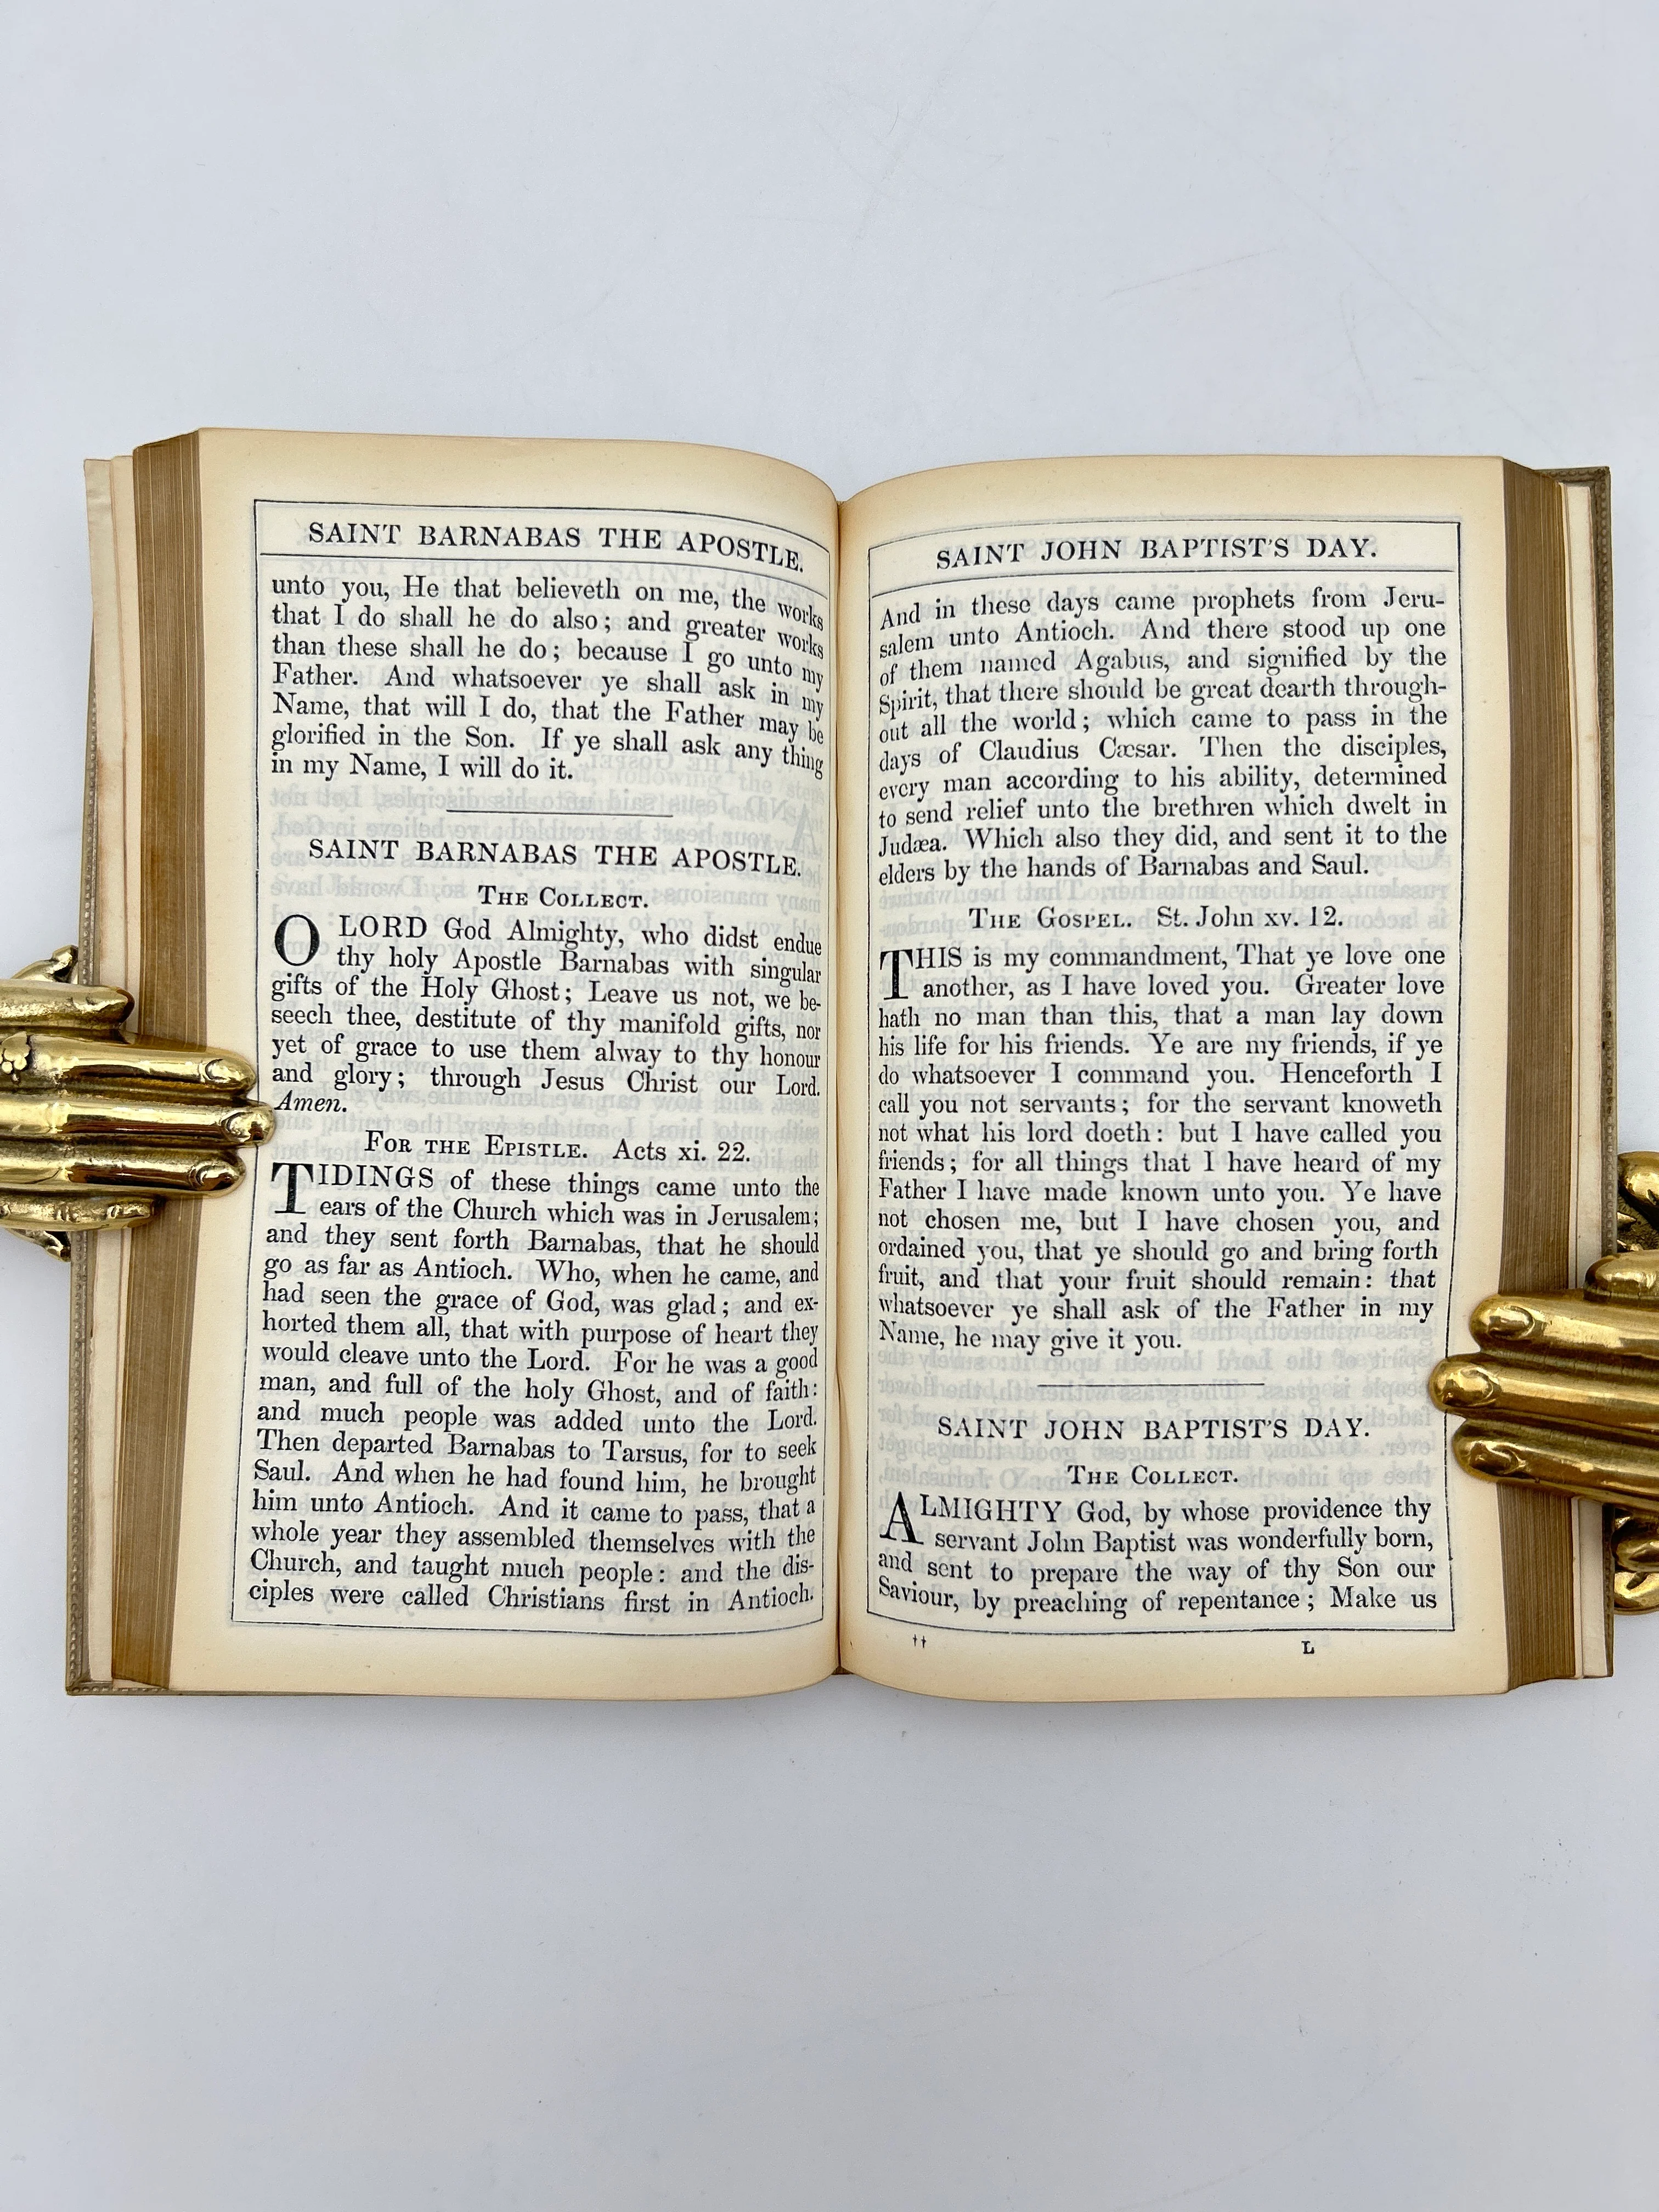 SAINT BARNABAS THE APOSTLE.
unto you, He that believeth on me, the works
that I do shall he do also; and greater works
than these shall he do; because I go unto my
Father. And whatsoever ye shall ask in my
Name, that will I do, that the Father may be
glorified in the Son. If ye shall ask any thing
in my Name, I will do it.
SAINT BARNABAS THE APOSTLE.
THE COLLECT.
O LORD God Almighty, who didst endue
thy holy Apostle Barnabas with singular
gifts of the Holy Ghost; Leave us not, we be-
seech thee, destitute of thy manifold gifts, nor
yet of grace to use them alway to thy honour
and glory; through Jesus Christ our Lord.
Amen.
FOR THE EPISTLE. Acts xi. 22.
TIDINGS of these things came unto the
ears of the Church which was in Jerusalem;
and they sent forth Barnabas, that he should
go as far as Antioch. Who, when he came, and
had seen the grace of God, was glad; and ex-
horted them all, that with purpose of heart they
would cleave unto the Lord. For he was a good
man, and full of the holy Ghost, and of faith:
and much people was added unto the Lord.
Then departed Barnabas to Tarsus, for to seek
Saul. And when he had found him, he brought
him unto Antioch. And it came to pass, that a
whole year they assembled themselves with the
Church, and taught much people: and the dis-
ciples were called Christians first in Antioch.
SAINT JOHN BAPTIST'S DAY.
And in these days came prophets from Jeru-
salem unto Antioch. And there stood up one
of them named Agabus, and signified by the
Spirit, that there should be great dearth through-
out all the world; which came to pass in the
days of Claudius Cæsar. Then the disciples,
every man according to his ability, determined
to send relief unto the brethren which dwelt in
Judæa. Which also they did, and sent it to the
elders by the hands of Barnabas and Saul.
THE GOSPEL. St. John xv. 12.
THIS is my commandment, That ye love one
another, as I have loved you. Greater love
hath no man than this, that a man lay down
his life for his friends. Ye are my friends, if ye
do whatsoever I command you. Henceforth I
call you not servants; for the servant knoweth
not what his lord doeth: but I have called you
friends; for all things that I have heard of my
Father I have made known unto you. Ye have
not chosen me, but I have chosen you, and
ordained you, that ye should go and bring forth
fruit, and that your fruit should remain: that
whatsoever ye shall ask of the Father in my
Name, he may give it you.
SAINT JOHN BAPTIST'S DAY.
THE COLLECT.
ALMIGHTY God, by whose providence thy
servant John Baptist was wonderfully born,
and sent to prepare the way of thy Son our
Saviour, by preaching of repentance; Make us
†† L